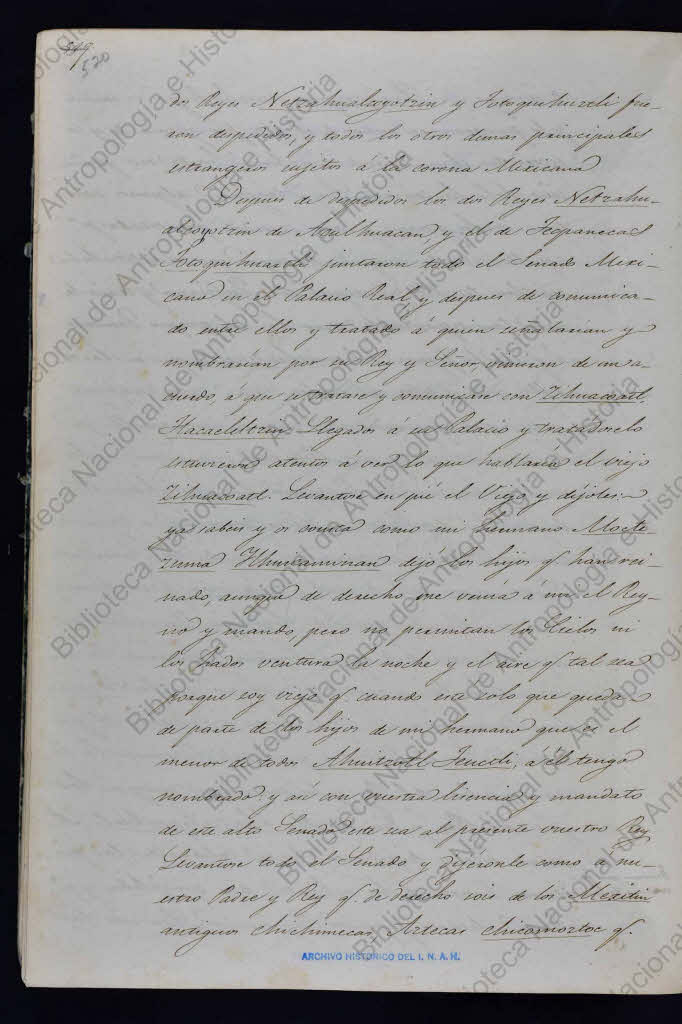 549
520
dos Reyes Netzahualcoyotzin y Totoquihuaztli fue-
ron despedidos, y todos los otros demas principales
estrangeros sujetos á la corona Mexicana
Despues de despedidos los dos Reyes Netzahu-
alcoyotzin de Aculhuacan, y el de Tecpanecas
Totoquihuaztli juntaron todo el Senado Mexi-
cano en el Palacio Real, y despues de comunica-
do entre ellos y tratado á quien señalarian y
nombrarian por su Rey y Señor, vinieron de un a-
cuerdo, á que se tratase y comunicase con Zihuacoatl
Tlacaeleltzin. Llegados á su Palacio y tratadoselo
estuvieron atentos á ver lo que hablaria el viejo
Zihuacoatl. Levantose en pié el Viejo y díjoles:
ya sabeis y os consta como mi hermano Mocte-
zuma Ilhuicaminan dejó los hijos q. han rei-
nado, aunque de derecho me venia á mi el Rey-
no y mando, pero no permitan los Cielos ni
los hados ventura la noche y el aire q. tal sea
porque soy viejo q. cuando este solo que queda
de parte de los hijos de mi hermano que es el
menor de todos Ahuitzotl Teuctli, á él tengo
nombrado: y así con vuestra licencia y mandato
de este alto Senado este sea al presente vuestro Rey
Levantose todo el Senado y dijeronle como á nu-
estro Padre y Rey q. de derecho sois de los Mexitin
antiguos Chichimecas, Aztecas Chicomoztoc q.
ARCHIVO HISTORICO DEL I. N. A. H.
Biblioteca Nacional de Antropología e Historia
Biblioteca Nacional de Antropología e Historia
Biblioteca Nacional de Antropología e Historia
Biblioteca Nacional de Antropología e Historia